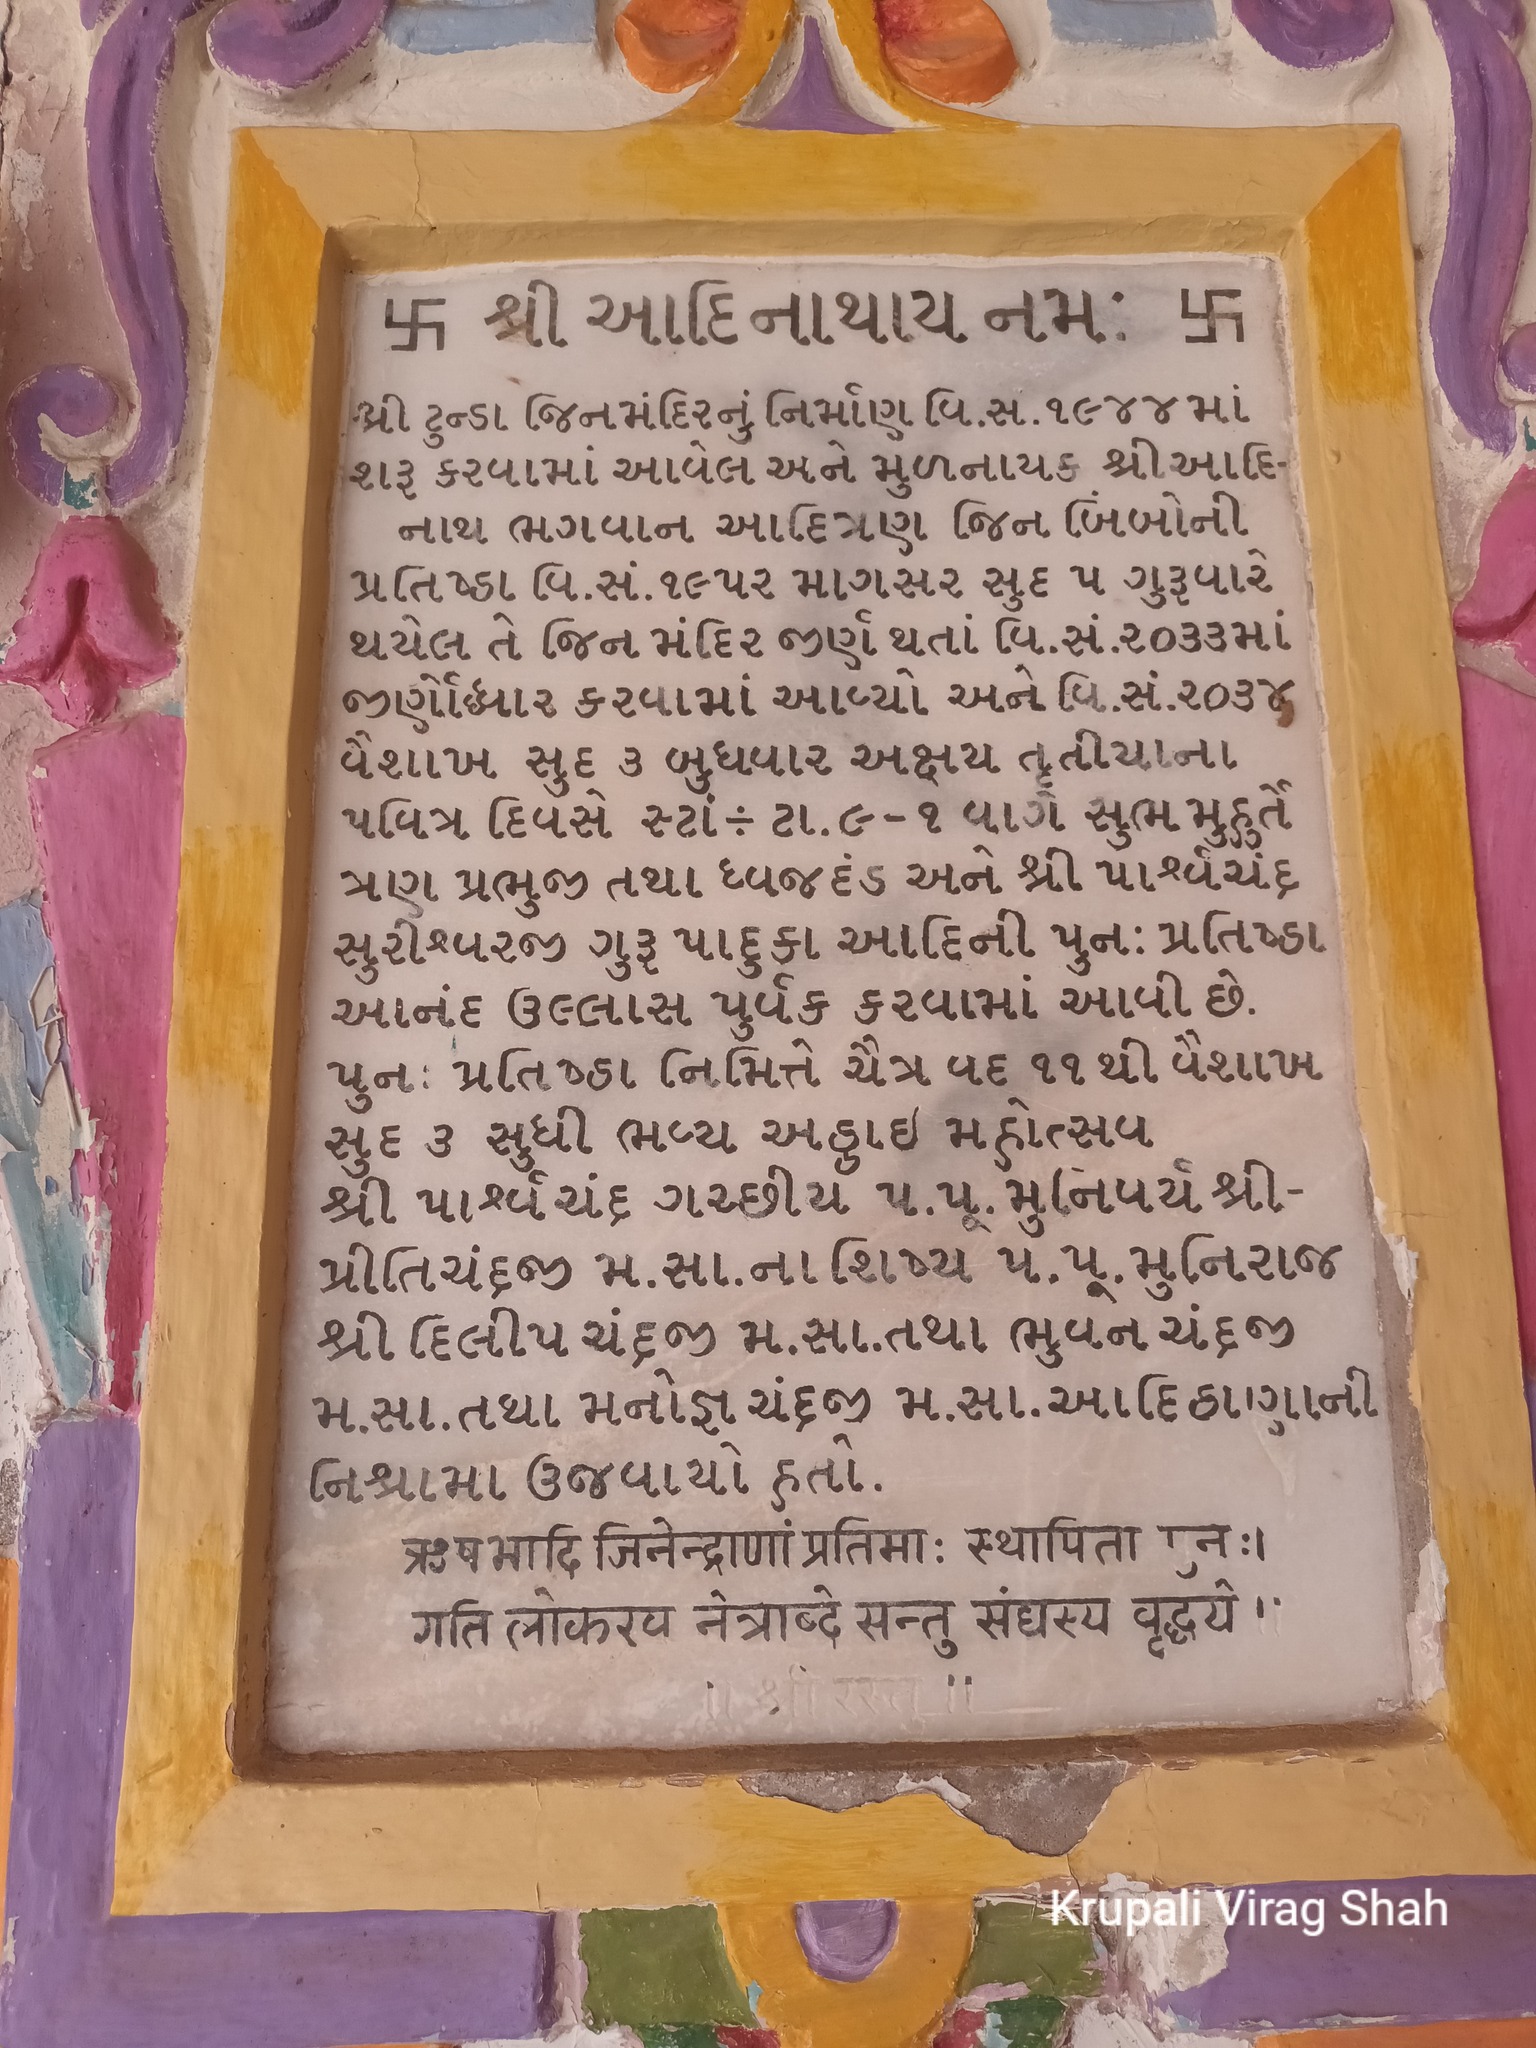 卐 શ્રી આદિનાથાય નમઃ 卐
શ્રી ટુન્ડા જિનમંદિરનું નિર્માણ વિ.સ.૧૯૪૪માં
શરૂ કરવામાં આવેલ અને મુળનાયક શ્રીઆદિ-
નાથ ભગવાન આદિત્રણ જિન બિંબોની
પ્રતિષ્ઠા વિ.સં.૧૯૫૨ માગસર સુદ ૫ ગુરૂવારે
થયેલ તે જિન મંદિર જીર્ણ થતાં વિ.સં.૨૦૩૩માં
જીર્ણોધ્ધાર કરવામાં આવ્યો અને વિ.સં.૨૦૩૪
વૈશાખ સુદ ૩ બુધવાર અક્ષય તૃતીયાના
પવિત્ર દિવસે સ્ટાં÷ ટા.૯-૧ વાગે સુભ મુહુર્તે
ત્રણ પ્રભુજી તથા ધ્વજદંડ અને શ્રી પાર્શ્વચંદ્ર
સુરીશ્વરજી ગુરૂ પાદુકા આદિની પુનઃ પ્રતિષ્ઠા
આનંદ ઉલ્લાસ પુર્વક કરવામાં આવી છે.
પુનઃ પ્રતિષ્ઠા નિમિત્તે ચૈત્ર વદ ૧૧થી વૈશાખ
સુદ ૩ સુધી ભવ્ય અઠ્ઠાઇ મહોત્સવ
શ્રી પાર્શ્વચંદ્ર ગચ્છીય પ.પૂ.મુનિવર્ય શ્રી-
પ્રીતિચંદ્રજી મ.સા.ના શિષ્ય પ.પૂ.મુનિરાજ
શ્રી દિલીપચંદ્રજી મ.સા.તથા ભુવનચંદ્રજી
મ.સા.તથા મનોજ્ઞચંદ્રજી મ.સા.આદિઠાણાની
નિશ્રામા ઉજવાયો હતો.
ऋषभादि जिनेन्द्राणां प्रतिमाः स्थापिता ।
गति लोकरव नेत्राब्दे सन्तु संघस्य वृद्धये ॥
॥ श्री ॥
Krupali Virag Shah